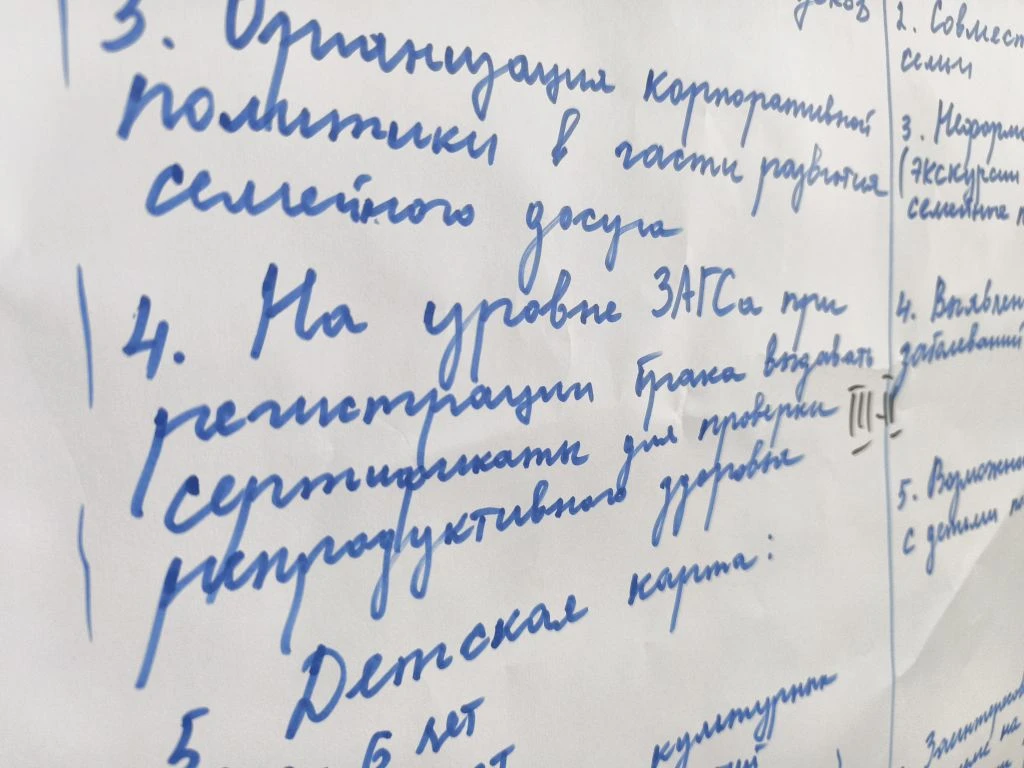 3. Организация корпоративной
политики в части развития
семейного досуга
4. На уровне ЗАГСа при
регистрации брака выдавать
сертификаты для проверки
репродуктивного здоровья
III-II
Детская карта:
5
6 лет
культурных
2. Совмест
семьи
3. Неформа
(экскурсии
семейные п
4. Выявлен
заболеваний
5. Возможно
с детьми